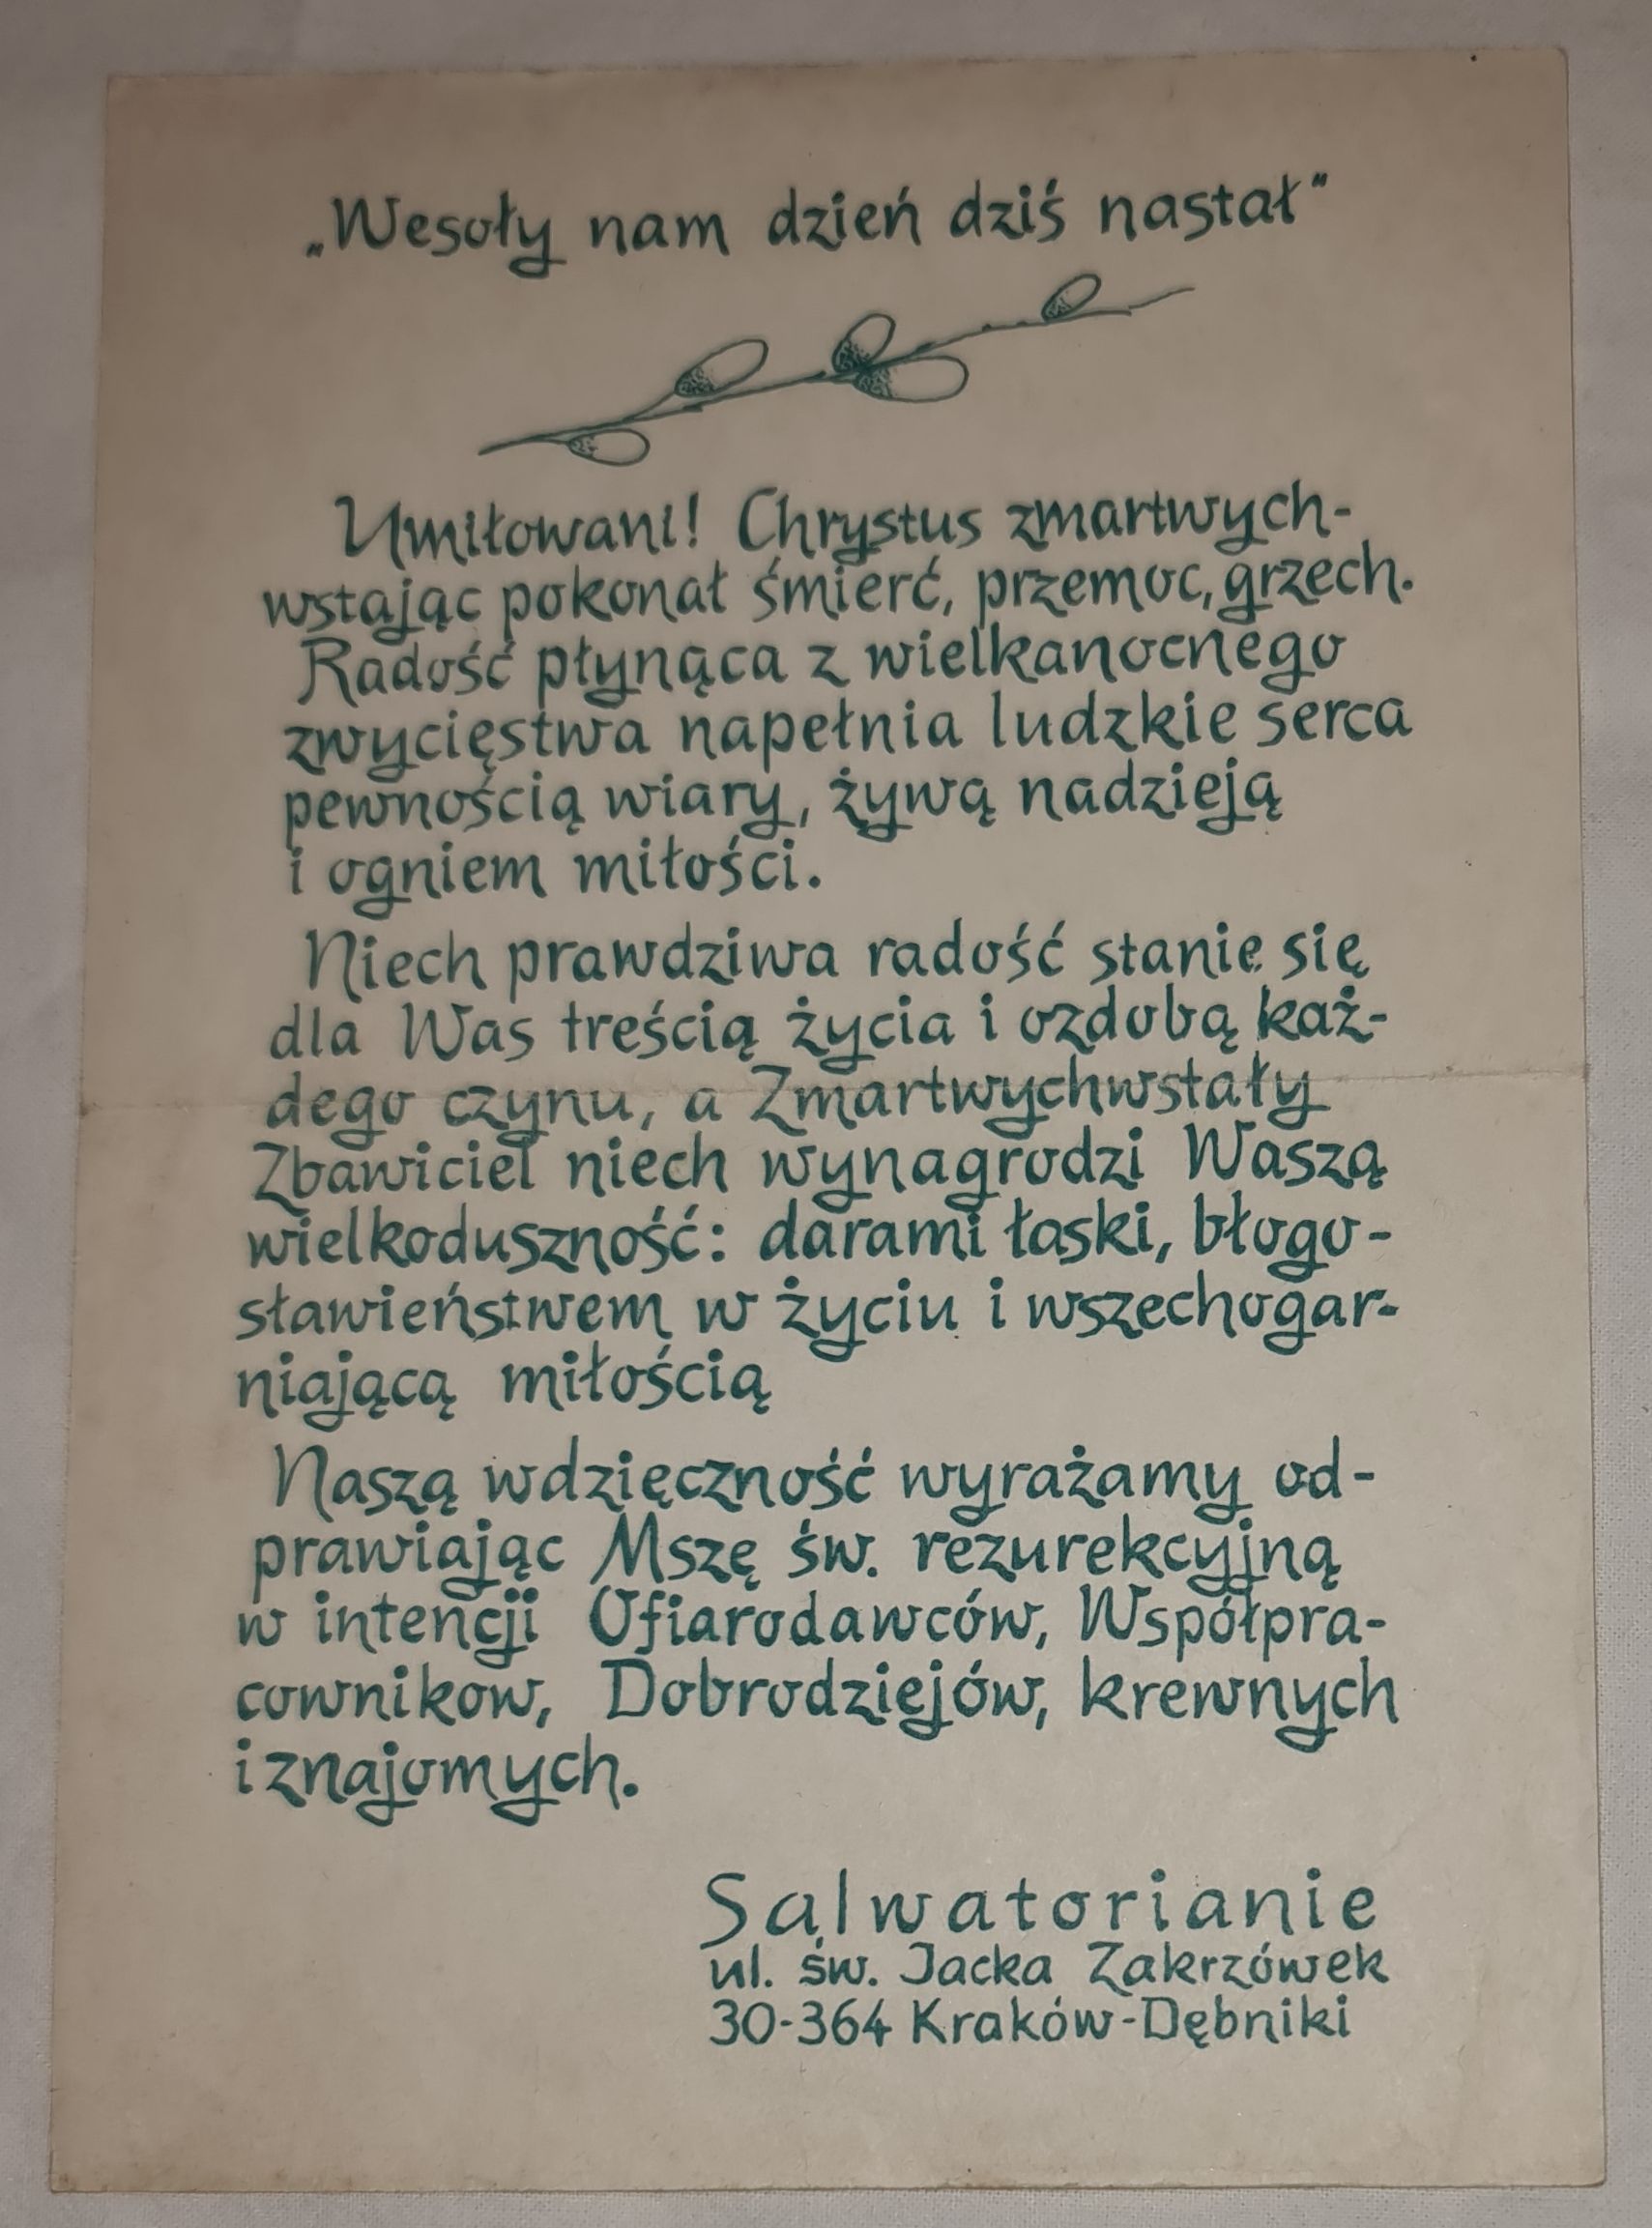 „Wesoły nam dzień dziś nastał"
Umiłowani! Chrystus zmartwych-
wstając pokonał śmierć, przemoc, grzech.
Radość płynąca z wielkanocnego
zwycięstwa napełnia ludzkie serca
pewnością wiary, żywą nadzieją
i ogniem miłości.
Niech prawdziwa radość stanie się
dla Was treścią życia i ozdobą każ-
dego czynu, a Zmartwychwstały
Zbawiciel niech wynagrodzi Waszą
wielkoduszność: darami łaski, błogo-
sławieństwem w życiu i wszechogar-
niającą miłością
Naszą wdzięczność wyrażamy od-
prawiając Mszę św. rezurekcyjną
w intencji Ofiarodawców, Współpra-
cownikow, Dobrodziejów, krewnych
i znajomych.
Salwatorianie
ul. św. Jacka Zakrzówek
30-364 Kraków-Dębniki